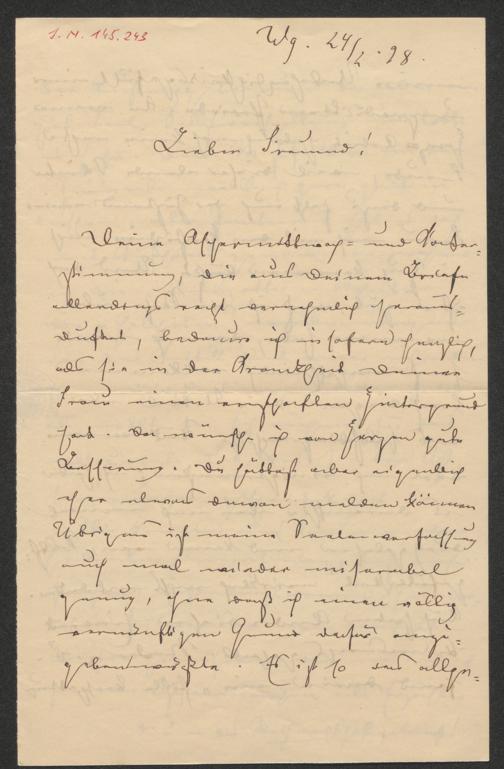 I. N. 145.243
Wg. 24/2. 98.
Lieber Freund!
Deine Aschermittwoch- und Kater-
stimmung, die aus Deinem Briefe
allerdings recht vernehmlich heraus-
duftet, bedaure ich insofern herzlich,
als sie in der Krankheit Deiner
Frau einen ernsthaften Hintergrund
hat. Da wünsche ich von Herzen gute
Besserung. Du hättest aber eigentlich
eher etwas davon melden können
Übrigens ist meine Seelenverfassung
auch mal wieder miserabel
genug, ohne daß ich einen völlig
vernünftigen Grund dafür anzu-
geben wüßte. Es ist so das allge-